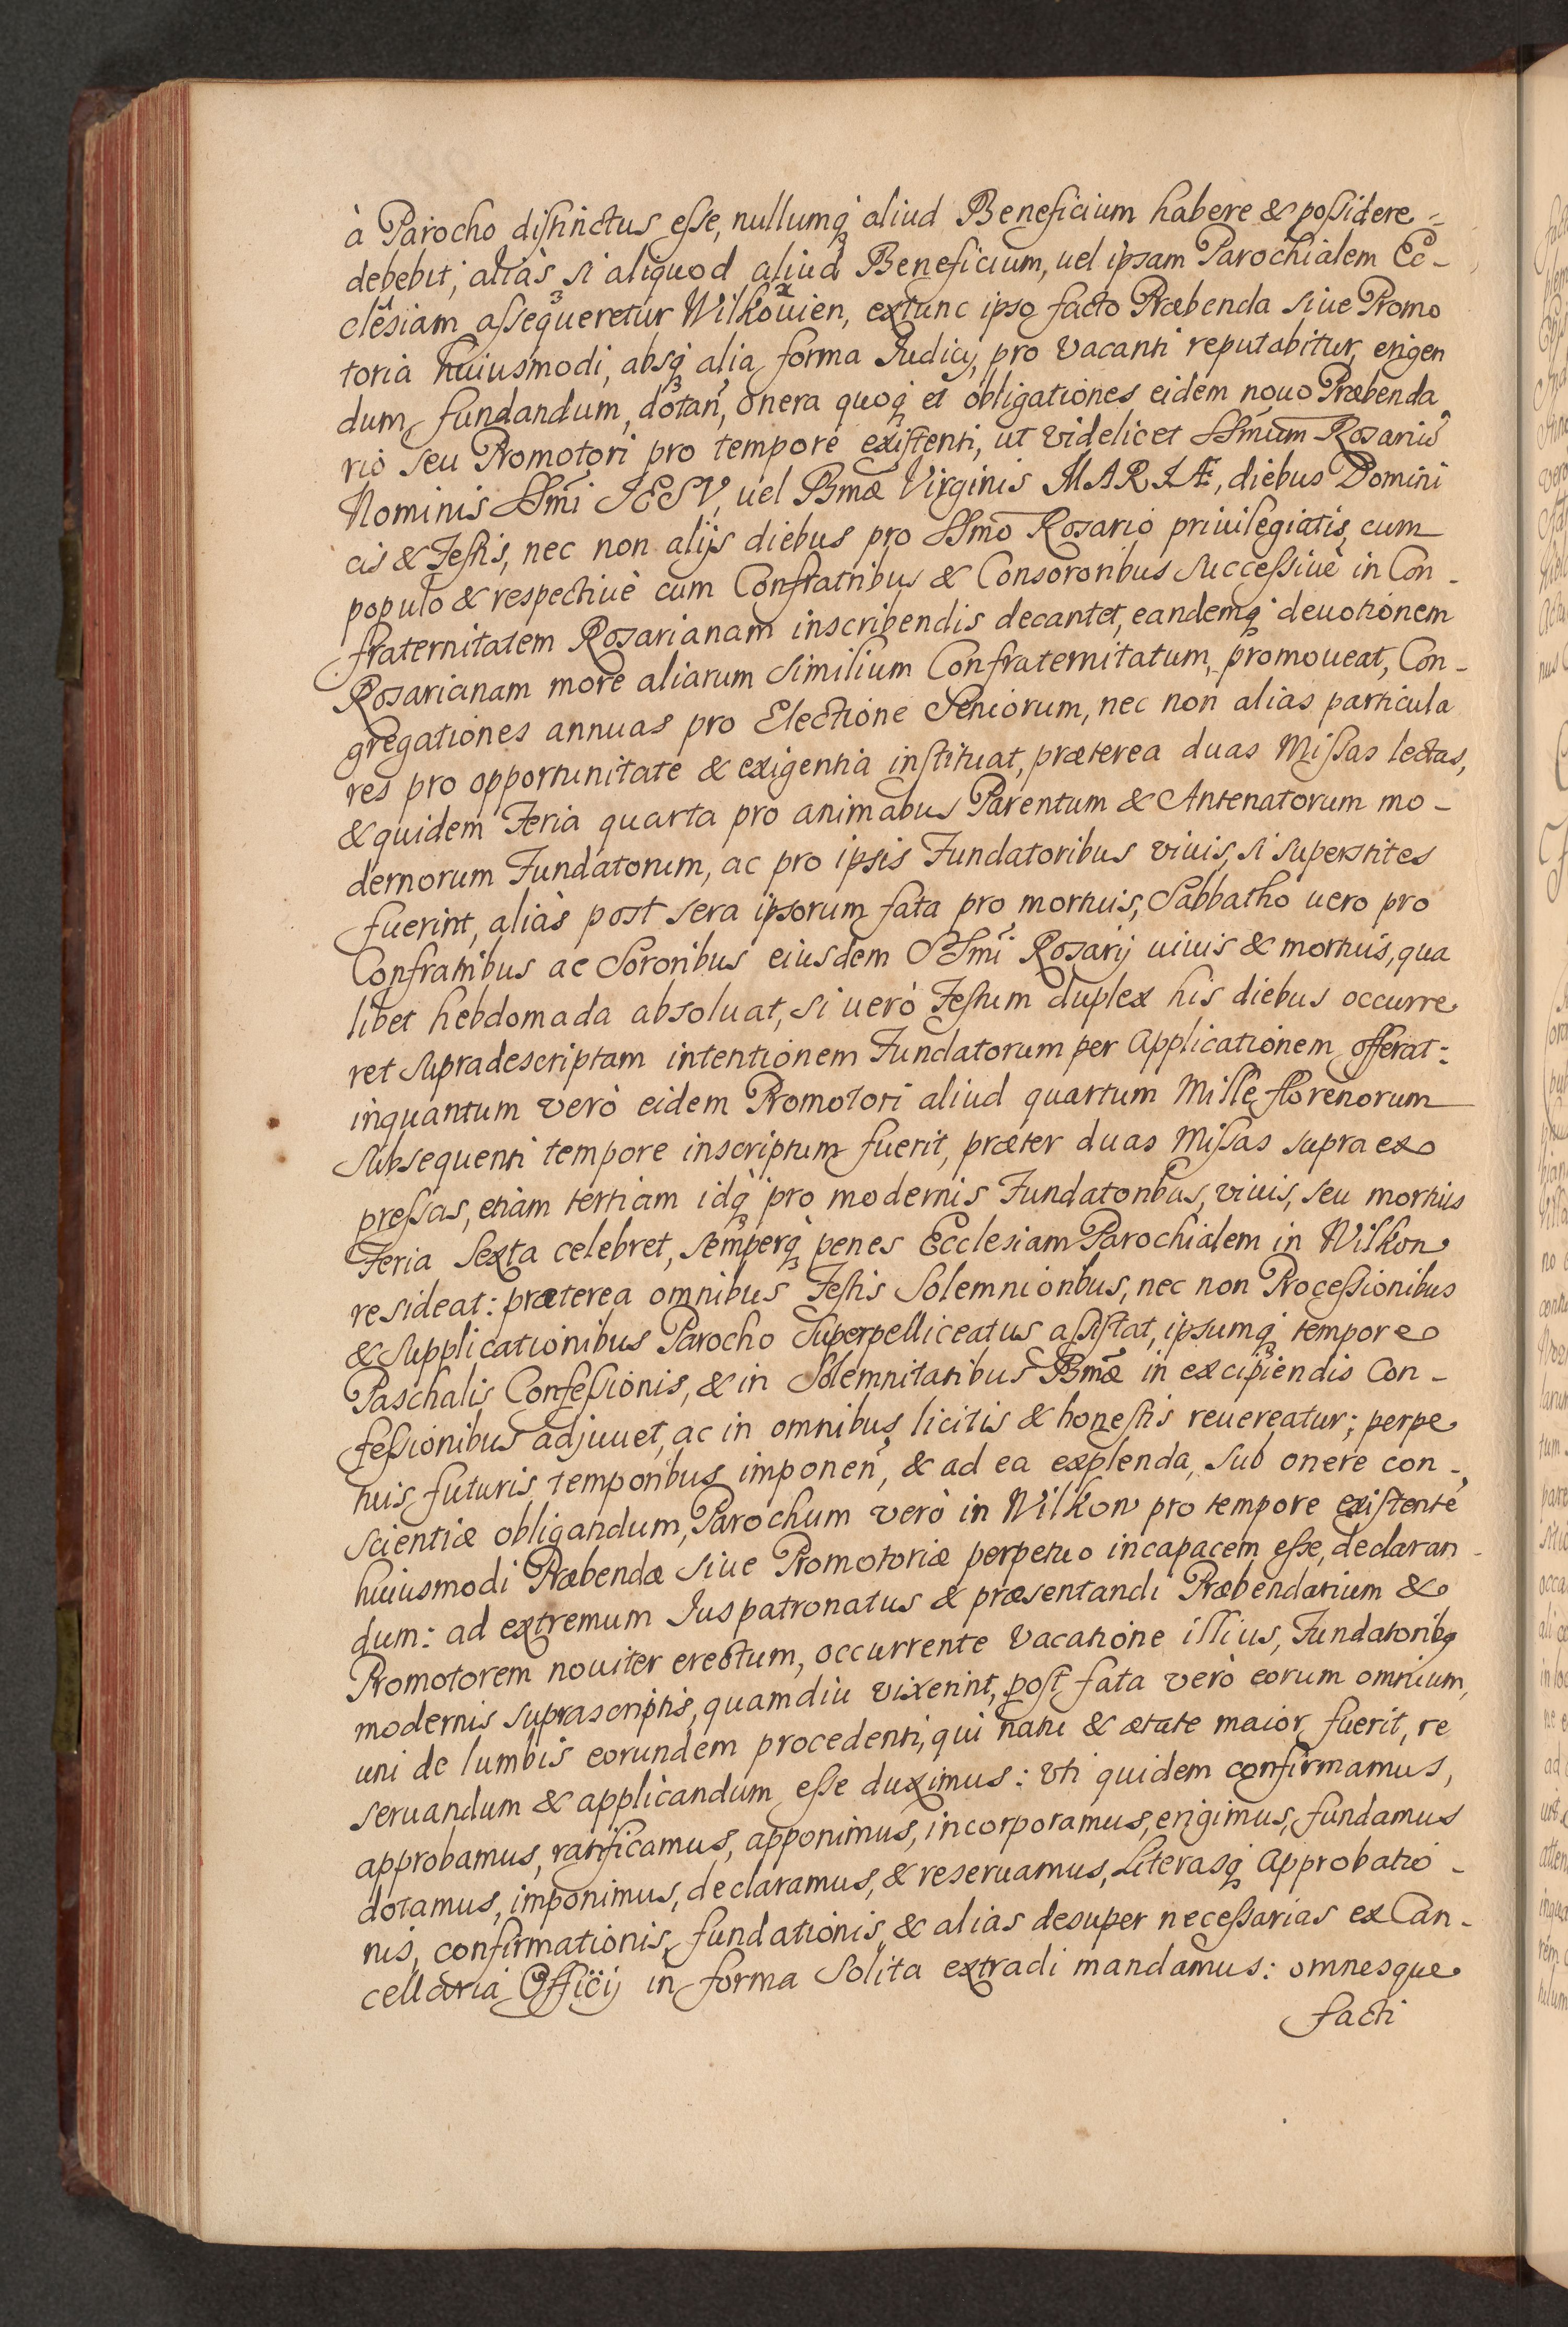 à Parocho distinctus esse, nullumq; aliud Beneficium habere & possidere
debebit; aliàs si aliquod aliud Beneficium, uel ipsam Parochialem Ec-
clesiam assequeretur Wilkouien, extunc ipso facto Præbenda siue Promo
toria huiusmodi, absq; alia forma Iudicij, pro vacanti reputabitur, erigen
dum, fundandum, dotan, onera quoq; et obligationes eidem nouo Præbenda
rio seu Promotori pro tempore existenti, ut videlicet SSmum Rosariũ
Nominis SSmi IESV, uel Bmæ Virginis MARIÆ, diebus Domini
cis & Festis, nec non alijs diebus pro SSmo Rosario priuilegiatis, cum
populo & respectiuè cum Confratribus & Consororibus successiuè in Con-
fraternitatem Rosarianam inscribendis decantet, eandemq; deuotionem
Rosarianam more aliarum similium Confraternitatum, promoueat, Con-
gregationes annuas pro Electione Seniorum, nec non alias particula
res pro opportunitate & exigentia instituat, præterea duas Missas lectas,
& quidem Feria quarta pro animabus Parentum & Antenatorum mo-
dernorum Fundatorum, ac pro ipsis Fundatoribus viuis, si superstites
fuerint, aliàs post sera ipsorum fata pro mortuis, Sabbatho uero pro
Confratribus ac Sororibus eiusdem SSmi Rosarij uiuis & mortuis, qua
libet hebdomada absoluat, si uerò Festum duplex his diebus occurre
ret supradescriptam intentionem Fundatorum per applicationem offerat:
inquantum verò eidem Promotori aliud quartum Mille florenorum
subsequenti tempore inscriptum fuerit, præter duas Missas supra ex
pressas, etiam tertiam idq; pro modernis Fundatoribus, viuis, seu mortuis
Feria Sexta celebret, semperq; penes Ecclesiam Parochialem in Wilkow
resideat: præterea omnibus Festis Solemnioribus, nec non Processionibus
& Supplicationibus Parocho Superpelliceatus assistat, ipsumq; tempore
Paschalis Confessionis, & in Solemnitatibus Bmæ in excipiendis Con-
fessionibus adjuuet, ac in omnibus licitis & honestis reuereatur; perpe
tuis futuris temporibus imponen, & ad ea explenda, sub onere con-
scientiæ obligandum, Parochum verò in Wilkow pro tempore existentẽ
huiusmodi Præbendæ siue Promotoriæ perpetuo incapacem esse, declaran-
dum: ad extremum Iuspatronatus & præsentandi Præbendarium &
Promotorem nouiter erectum, occurrente vacatione illius, Fundatoribq
modernis suprascriptis, quamdiu vixerint, post fata verò eorum omnium,
uni de lumbis eorundem procedenti, qui natu & ætate maior fuerit, re
seruandum & applicandum esse duximus: Vti quidem confirmamus,
approbamus, ratificamus, apponimus, incorporamus, erigimus, fundamus
dotamus, imponimus, declaramus, & reseruamus, Literasq; approbatio-
nis, confirmationis, fundationis, & alias desuper necessarias ex Can-
cellaria Officij in forma solita extradi mandamus: omnesque
facti